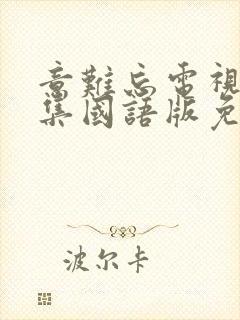 意難忘電視
集國語版免
波尔卡